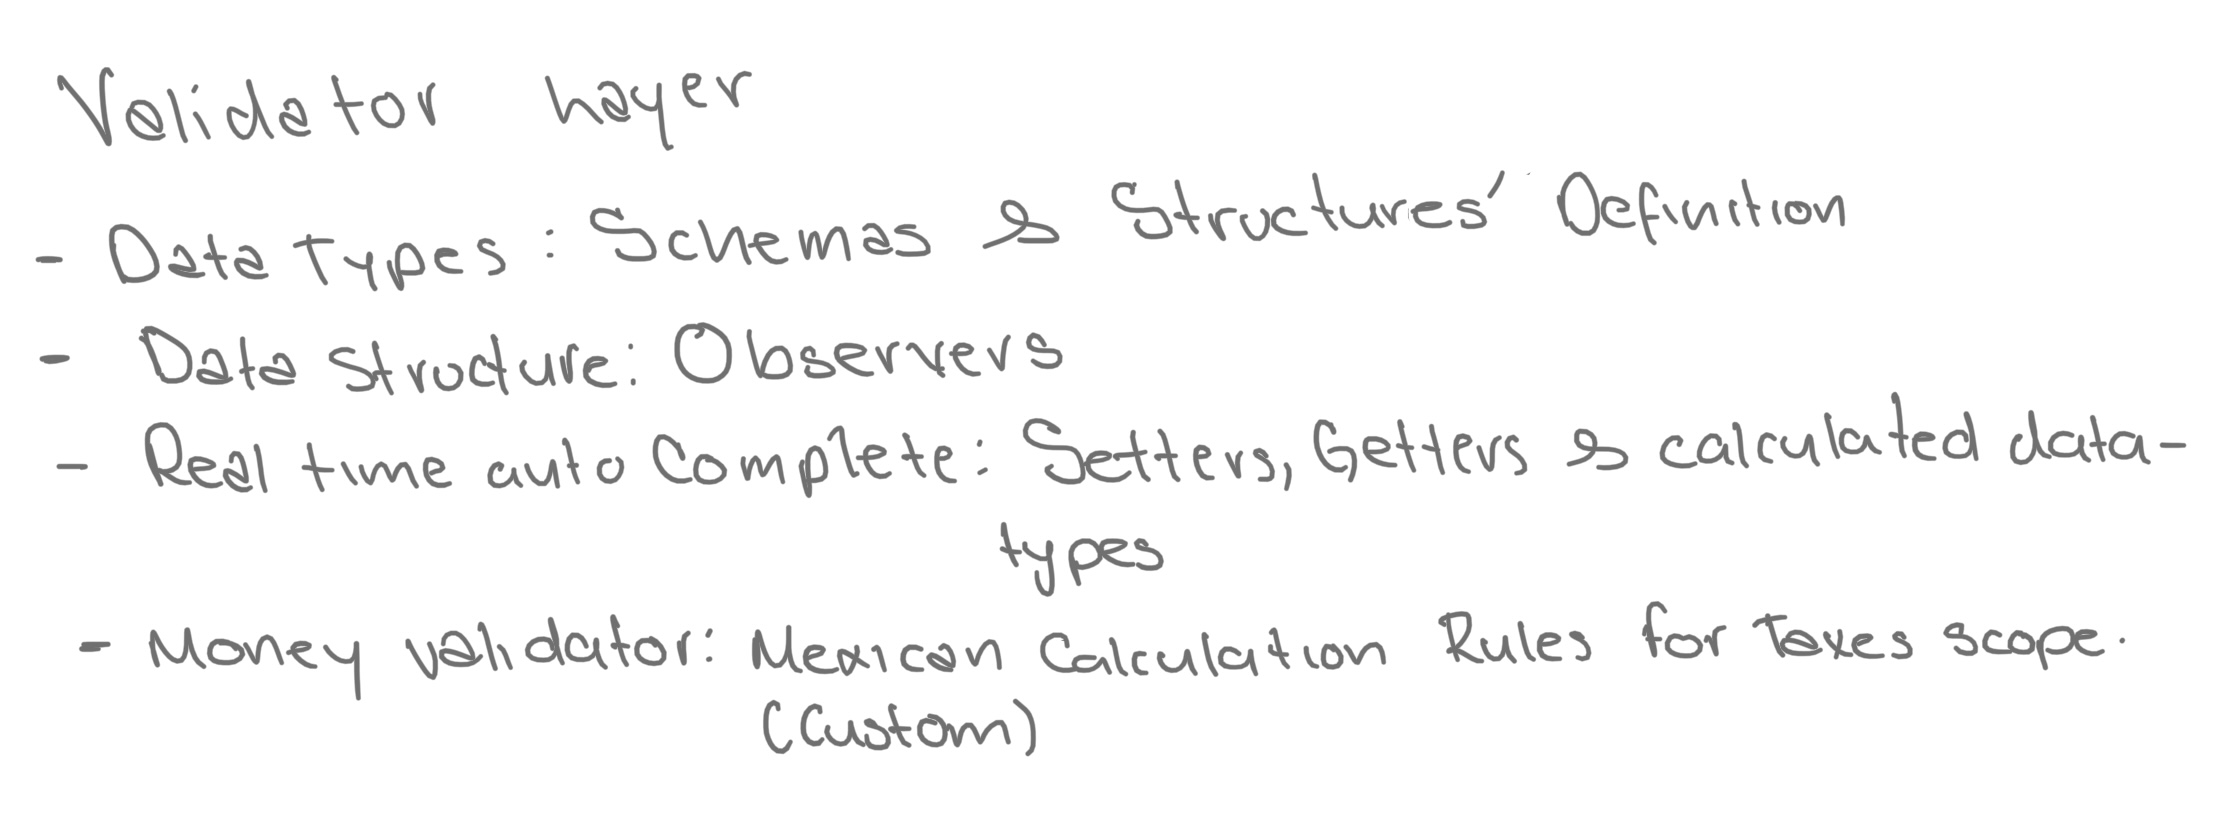 Validator Layer
- Data Types: Schemas & Structures' Definition
- Data structure: Observers
- Real time auto Complete: Setters, Getters & calculated data-
types
- Money validator: Mexican Calculation Rules for Taxes scope.
(Custom)